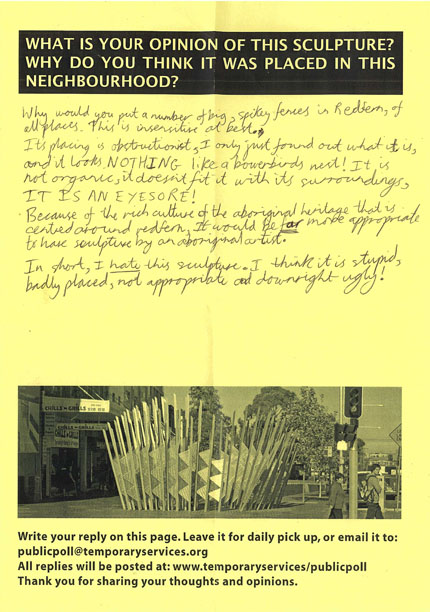 WHAT IS YOUR OPINION OF THIS SCULPTURE?
WHY DO YOU THINK IT WAS PLACED IN THIS
NEIGHBOURHOOD?
Why would you put a number of big, spikey fences in Redfern, of
all places. This is insensitive at best.
Its placing is obstructionist, I only just found out what it is,
and it looks NOTHING like a bowerbirds nest! It is
not organic, it doesnt fit it with its surroundings,
IT IS AN EYESORE!
Because of the rich culture of the aboriginal heritage that is
centred around redfern, It would be far more appropriate
to have sculpture by an aboriginal artist.
In short, I hate this sculpture. I think it is stupid,
badly placed, not appropriate ad downright ugly!
CHILLS N GRILLS
CHILLS N GRILLS
Write your reply on this page. Leave it for daily pick up, or email it to:
publicpoll@temporaryservices.org
All replies will be posted at: www.temporaryservices/publicpoll
Thank you for sharing your thoughts and opinions.